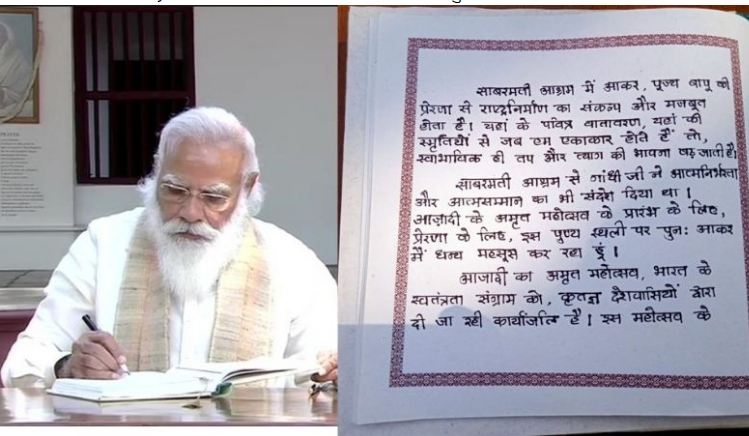 साबरमती आश्रम में आकर, पूज्य बापू की
प्रेरणा से राष्ट्रनिर्माण का संकल्प और मजबूत
होता है। यहां के पवित्र वातावरण, यहां की
स्मृतियों से जब हम एकाकार होते हैं तो,
स्वाभाविक ही तप और त्याग की भावना बढ़ जाती है।
साबरमती आश्रम से गांधी जी ने आत्मनिर्भरता
और आत्मसम्मान का भी संदेश दिया था।
आज़ादी के अमृत महोत्सव के प्रारंभ के लिए,
प्रेरणा के लिए, इस पुण्य स्थली पर पुनः आकर
मैं धन्य महसूस कर रहा हूं।
आजादी का अमृत महोत्सव, भारत के
स्वतंत्रता संग्राम को, कृतज्ञ देशवासियों द्वारा
दी जा रही कार्यांजलि है। इस महोत्सव के